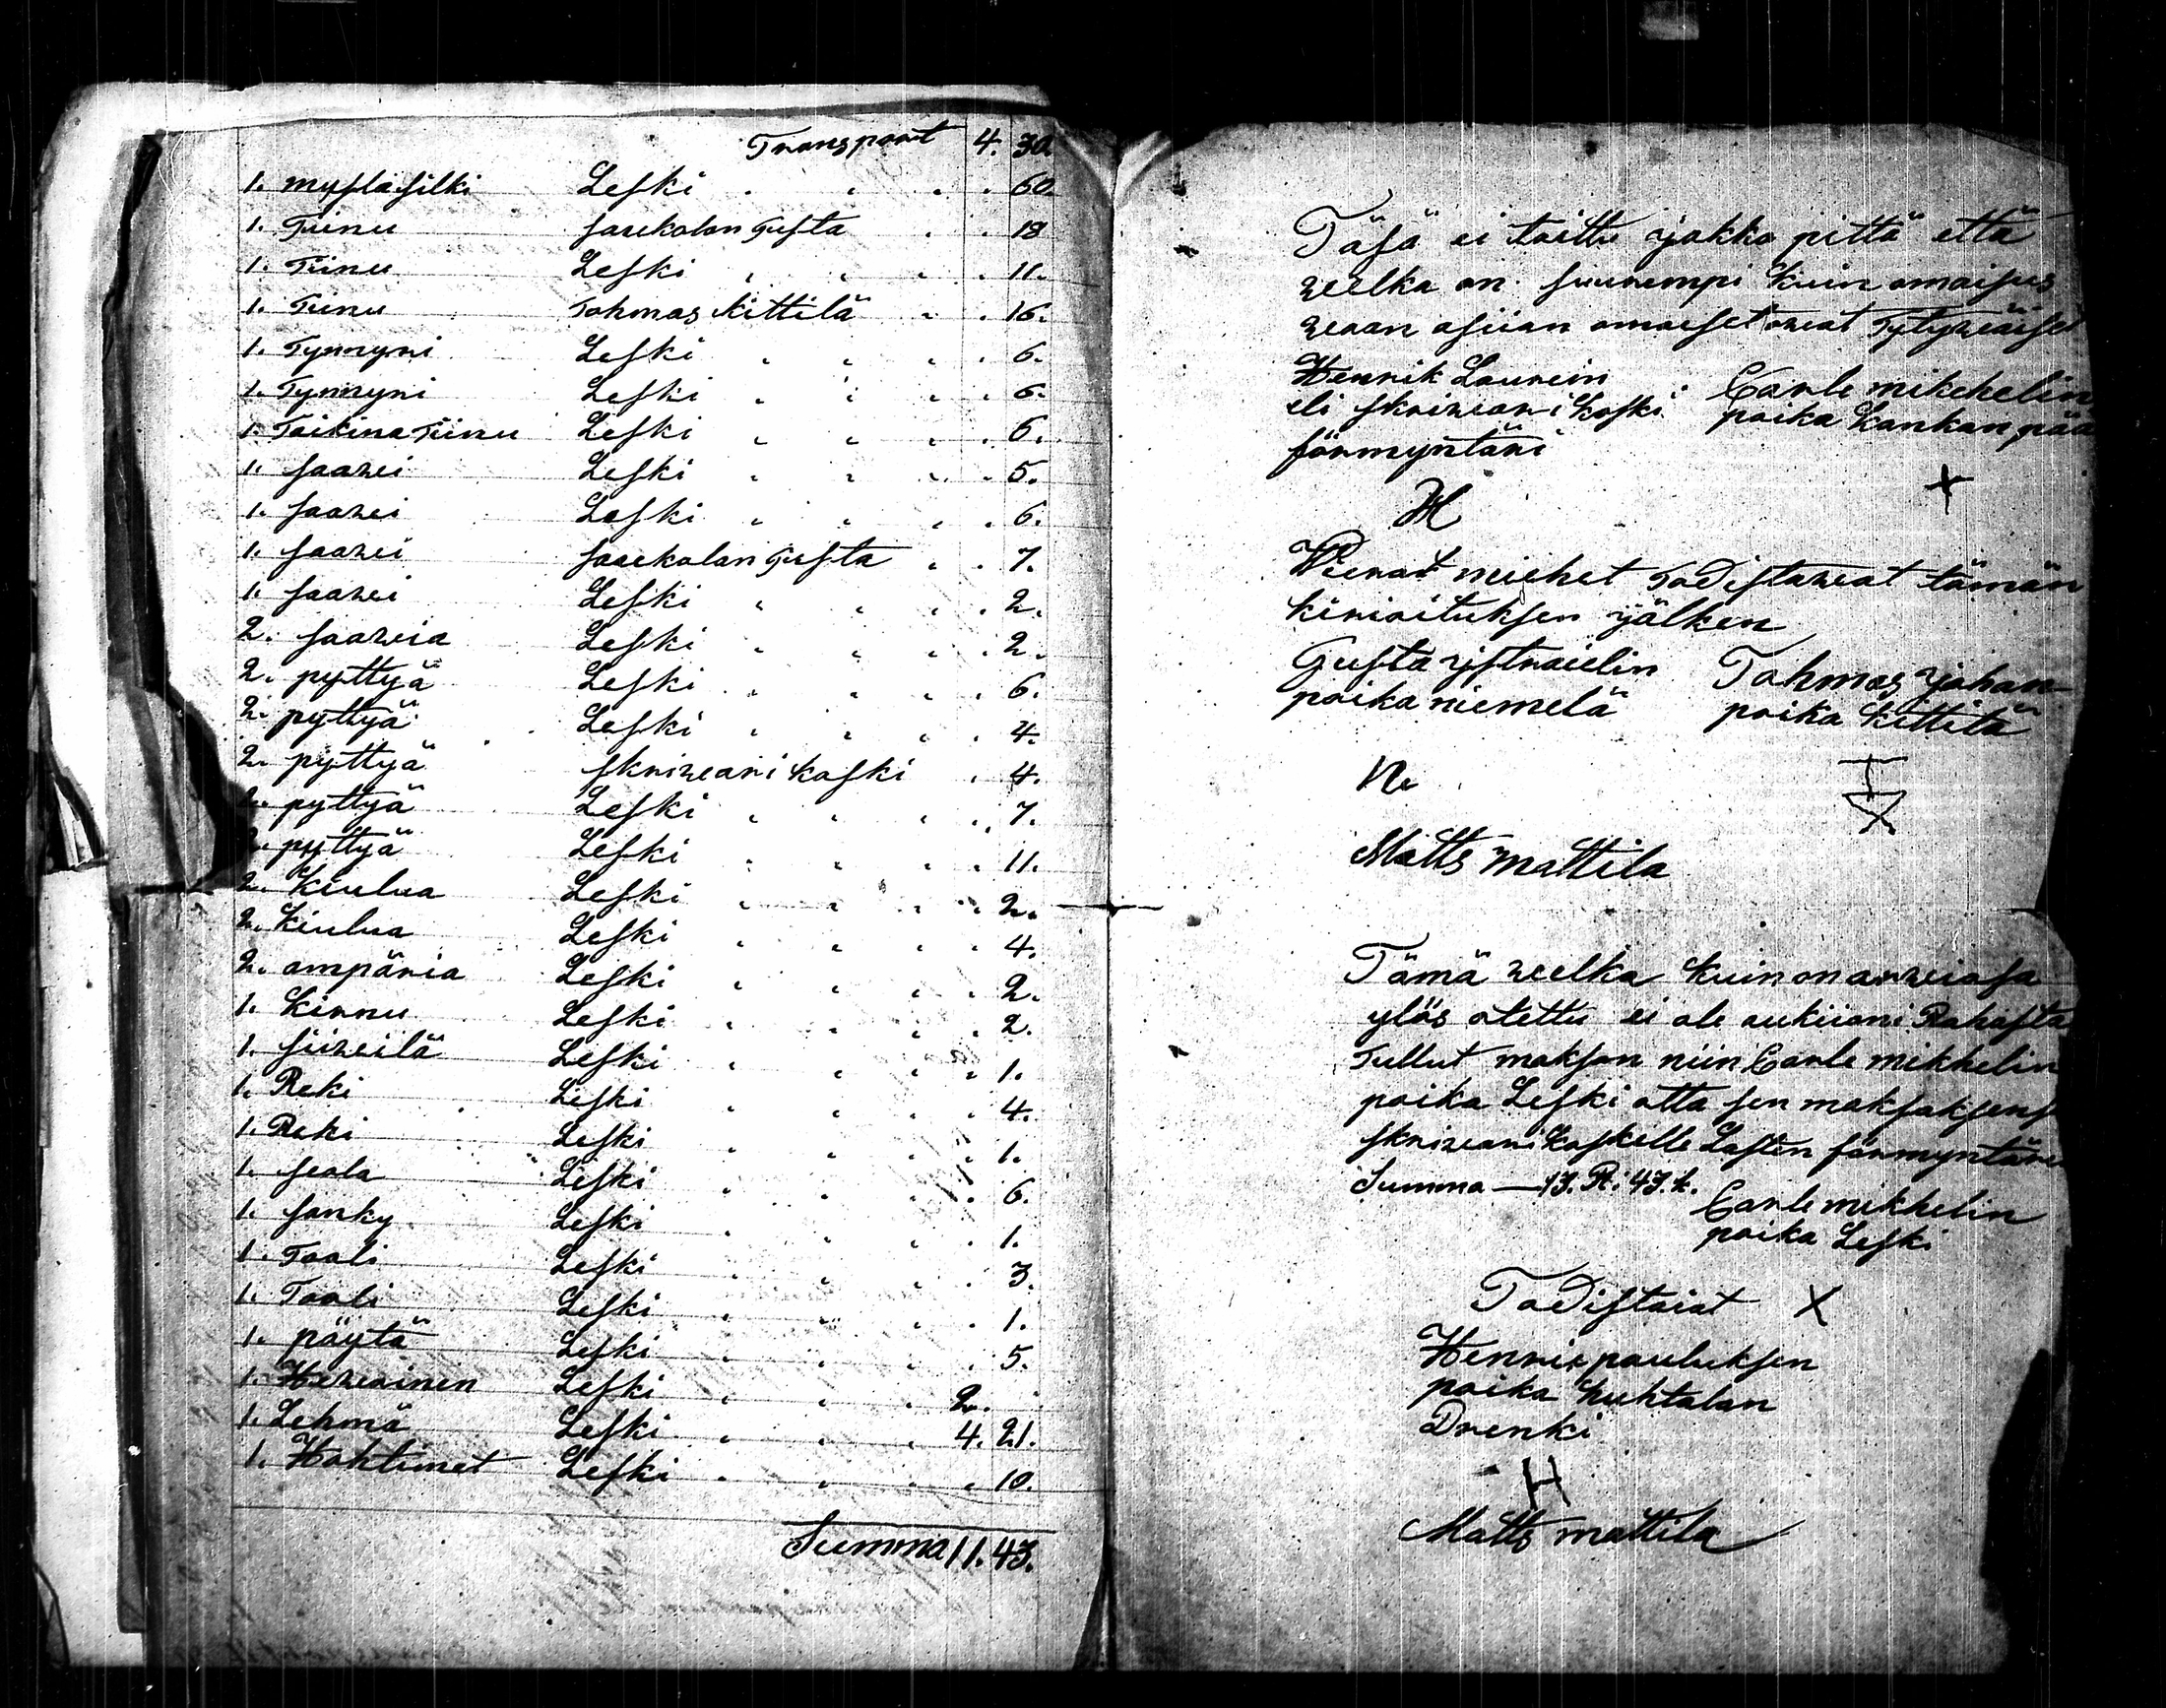 Transport 4. 30.
1. mysläsilki Leski 60.
1. Tiinu sarekolan Gusta 18
1. Tiinu Leski 11.
1. Tiinu Tohmas Kittilä 16.
1. Tynnyni Leski 6.
1. Tynnyni Leski 6.
1. Taikina Tiinu Leski 6.
1. saavei Leski 5.
1. saavei Leski 6.
1. saavei saarekolan Gusta 7.
1. saavei Leski 2.
2. saaveia Leski 2.
2. pyttyä Leski 6.
2. pyttyä Leski 4.
2. pyttyä skriveari Koski 4.
pyttyä Leski 7.
pyttyä Leski 11.
2. Kiulua Leski 2.
2. Kiulua Leski 4.
2. ampäria Leski 2.
1. Kirnu Leski 2.
1. siiveilä Leski 1.
1. Reki Leski 4.
1. Reki Leski 1.
1. seola Leski 6.
1. sanky Leski 1.
1. Tooli Leski 3.
1. Tooli Leski 1.
1. pöytä Leski 5.
1. Heveoinen Leski 2.
1. Lehmä Leski 4. 21.
1. Hohtimet Leski 10.
Summa 11. 43.
Täsä ei toittu jakko pittä että
veelka on suurempi kuin omaisus
veaan asiian omaiset oveat Tytyveäiset
Henrik Laurein
eli skriveari Koski
förmyntäri
Carle mikehelin
poika Lankan pää
H
X
Vierat miehet Todistaveat tämän
kirioituksen jälken
Gusta jstraielin
poika niemelä
Tohmas johan
poika Kittilä
N.
Matts Mattila
Tämä veelka kuin on arveiosa
ylös otettu ei ole aukiioni Rahasta
Tullut makson niin Carle mikhelin
poika Leski otta sen maksaksens
skriveari Koskelle Lasten förmyntäri
Summa — 13. R: 43. k.
Carle mikhelin
poika Leski
Todistaiat X
Henrik pauluksen
poika huhtalan
Drenki
H
Matts mattila